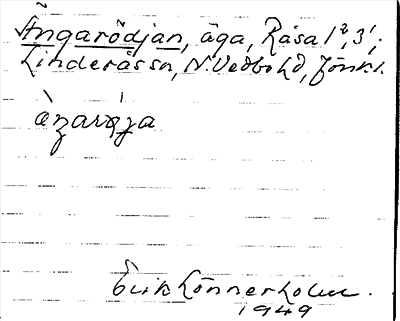 Ängarödjan, äga, Råsa 1², 3¹;
Linderås sn, N. Vedbo hd, Jönk. l.
Erik Lönnerholm.
1949